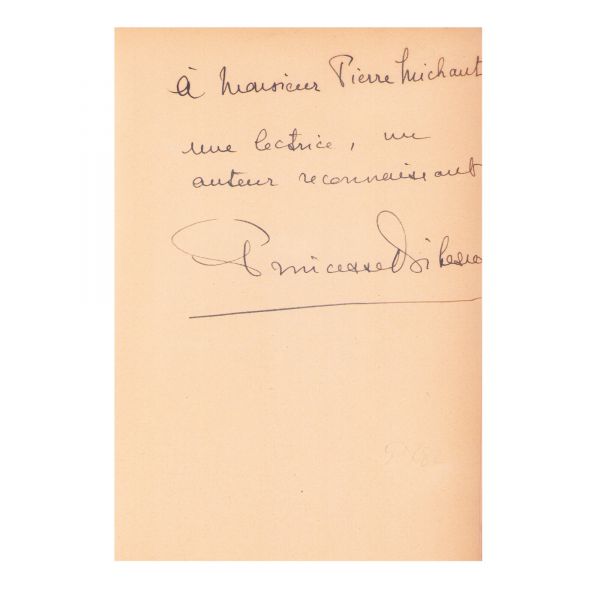 à Monsieur Pierre Michaut
une lectrice, un
auteur reconnaissant
Princesse Bibesco